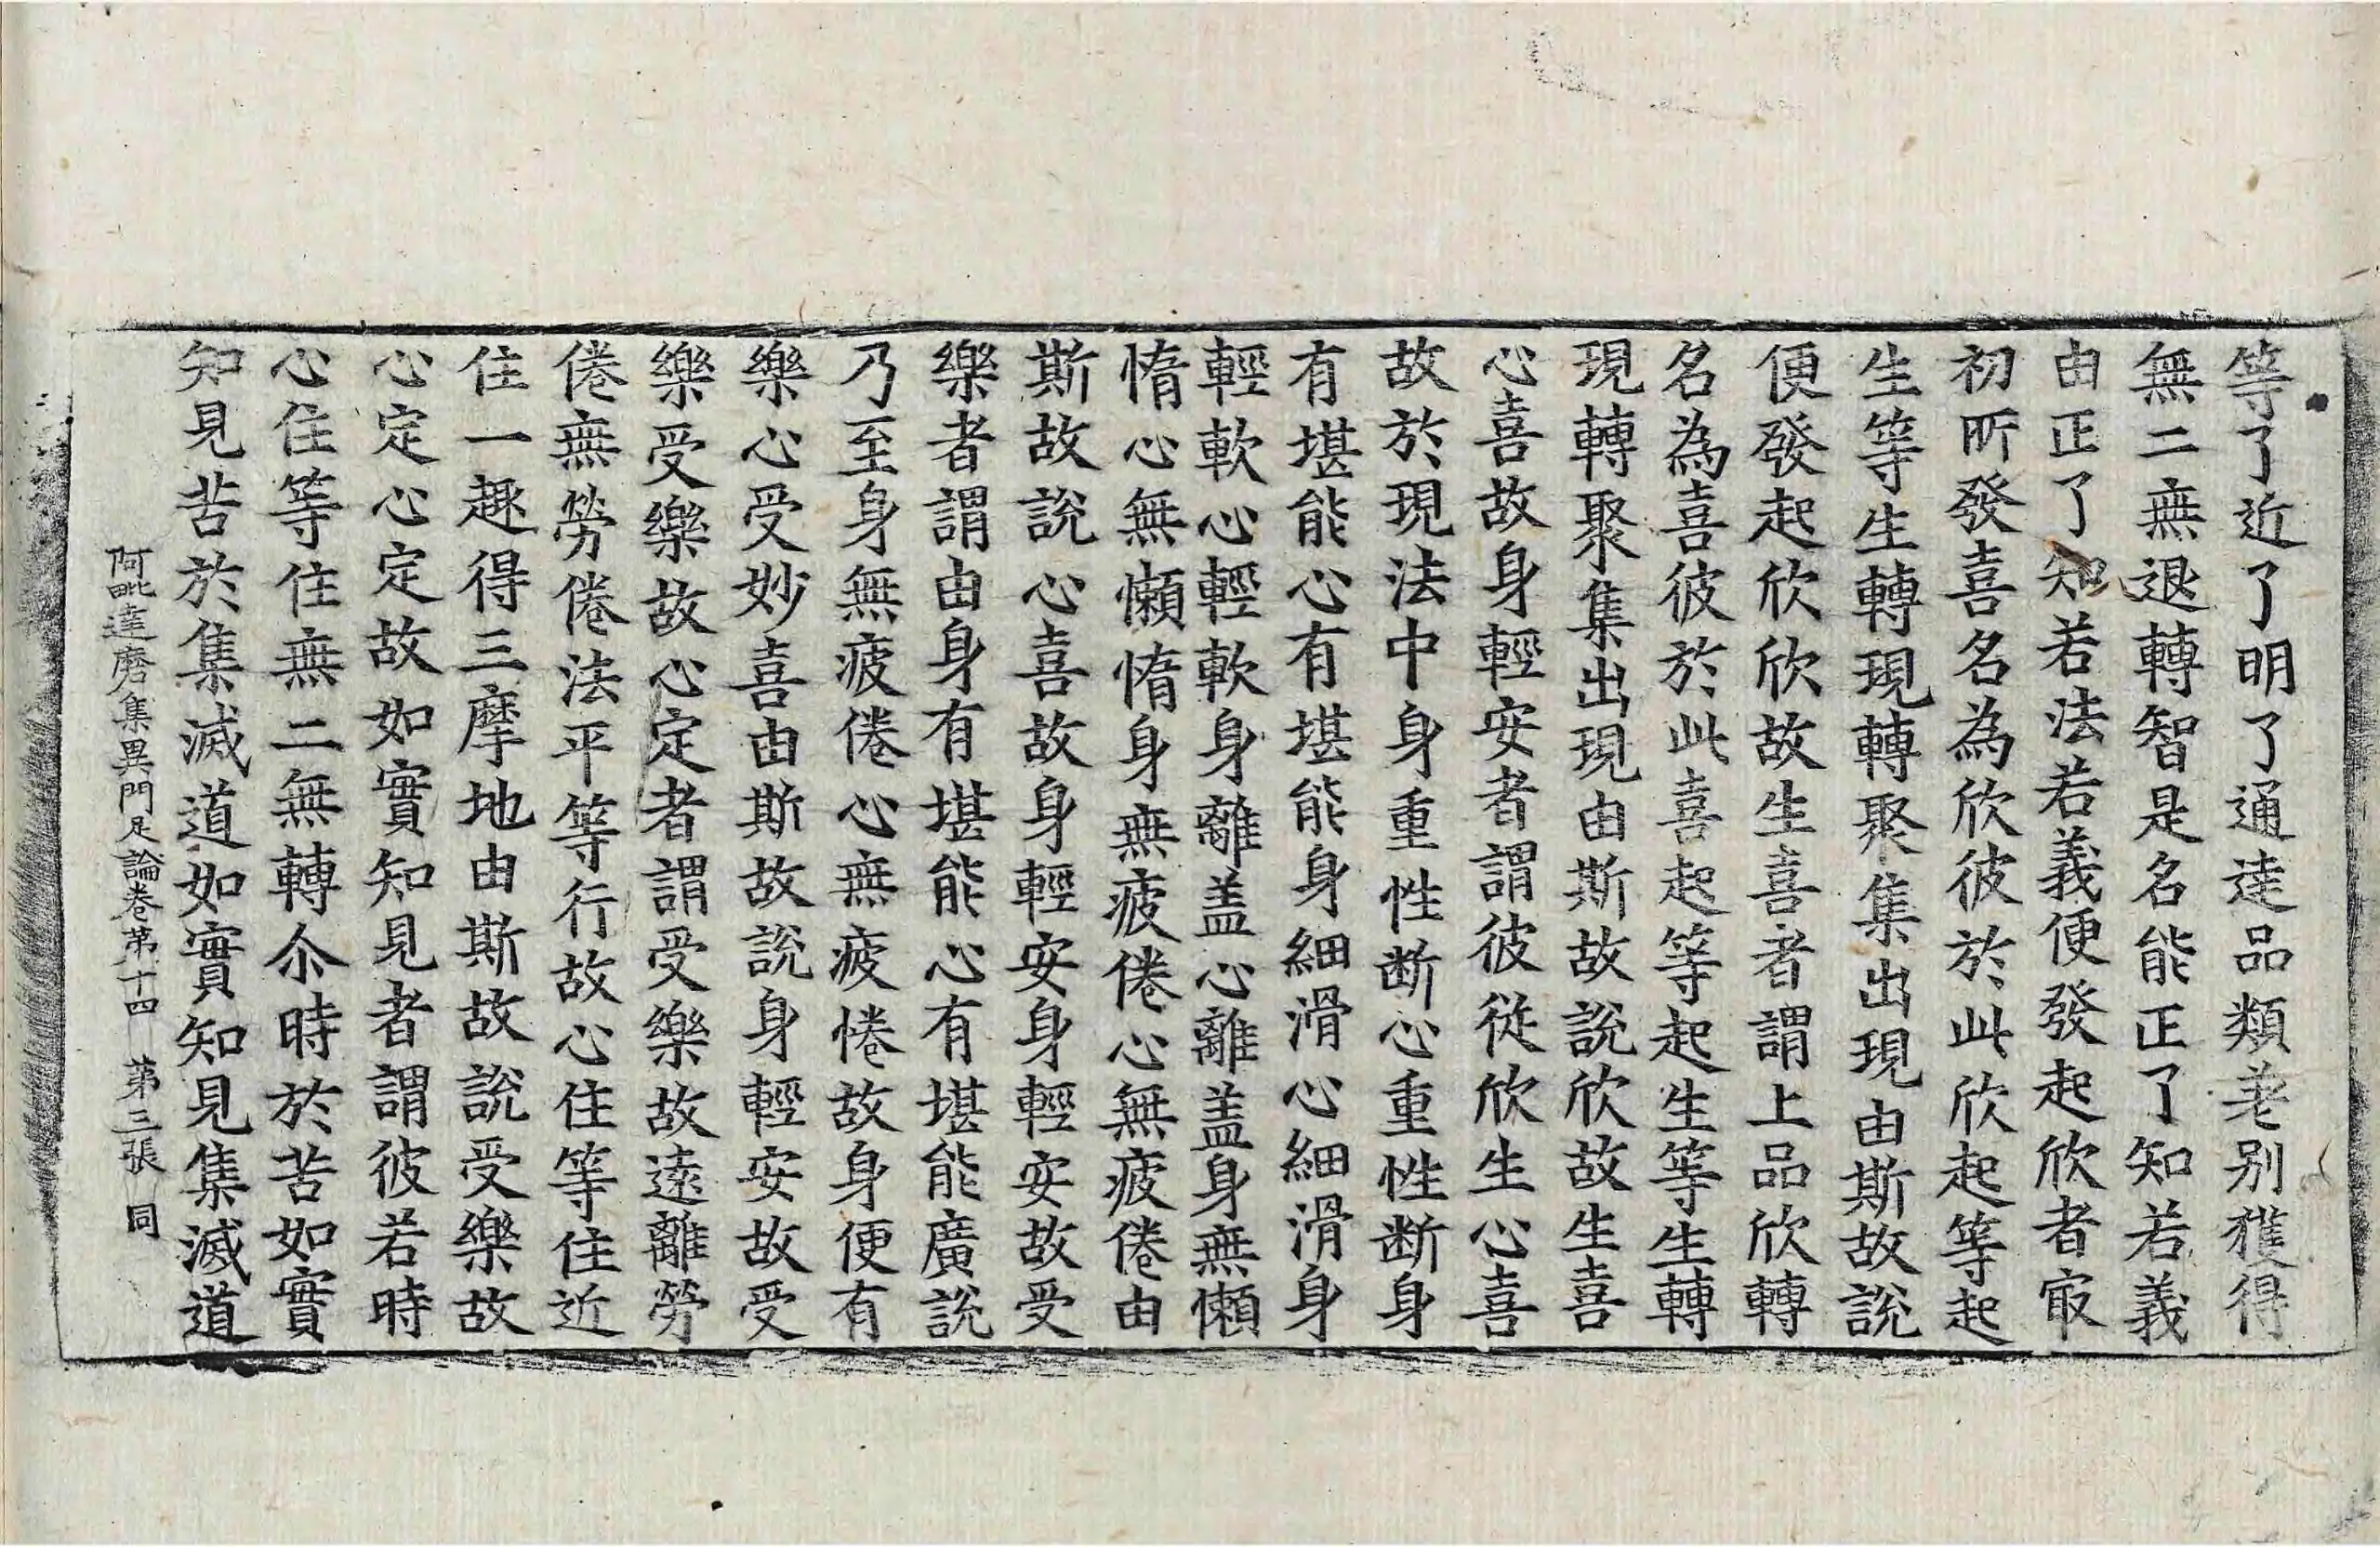 等了近了明了通達品類差別獲得
無二無退轉智是名能正了知若義
由正了知若法若義便發起欣者㝡
初所發喜名為欣彼於此欣起等起
生等生轉現轉聚集出現由斯故說
便發起欣欣故生喜者謂上品欣轉
名為喜彼於此喜起等起生等生轉
現轉聚集出現由斯故說欣故生喜
心喜故身輕安者謂彼從欣生心喜
故於現法中身重性断心重性断身
有堪能心有堪能身細滑心細滑身
輕軟心輕軟身離盖心離盖身無懶
惰心無懶惰身無疲倦心無疲倦由
斯故說心喜故身輕安身輕安故受
樂者謂由身有堪能心有堪能廣說
乃至身無疲倦心無疲惓故身便有
樂心受妙喜由斯故說身輕安故受
樂受樂故心定者謂受樂故遠離勞
倦無勞倦法平等行故心住等住近
住一趣得三摩地由斯故說受樂故
心定心定故如實知見者謂彼若時
心住等住無二無轉尒時於苦如實
知見苦於集滅道如實知見集滅道
阿毗達磨集異門足論卷第十四 第三張 同